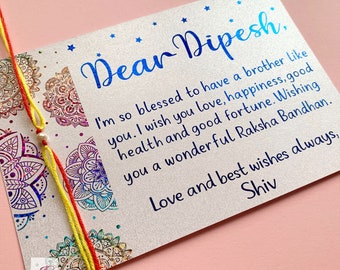 Dear Dipesh,
I'm so blessed to have a brother like
you. I wish you love, happiness, good
health and good fortune. Wishing
you a wonderful Raksha Bandhan.
Love and best wishes always,
Shiv